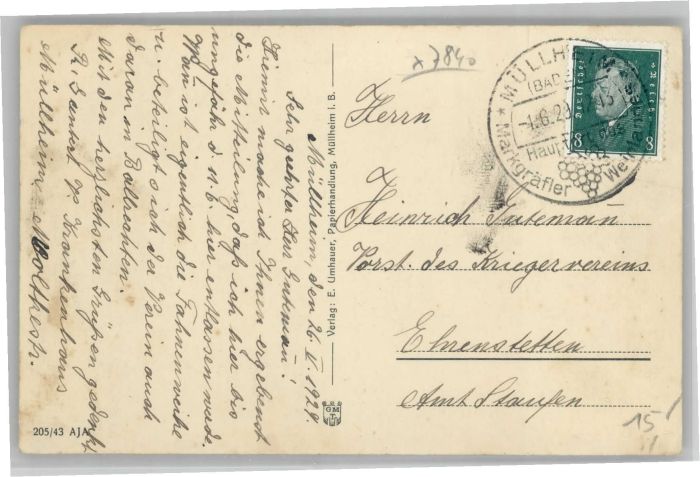 Müllheim, den 26. V. 1929.
Sehr geehrter Herr Gutemann!
Hiermit mache ich Ihnen ergebenst
die Mitteilung, daß ich hier bis
ungefähr d. 11. 6. hier entlassen werde.
Wann ist eigentlich die Fahnenweihe
u. beteiligt sich der Verein auch
daran in Bollschweil.
Mit den herzlichsten Grüßen gedenkt
Müllheim Krankenhaus
Moltkestr.
Verlag: E. Umhauer, Papierhandlung, Müllheim i. B.
205/43 AJA
GM
x 7840
Herrn
Heinrich Gutemann
Vorst. des Kriegervereins
Ehrenstetten
Amt Staufen
15
Deutsches Reich
8 8
MÜLLHEIM
(BADEN)
-1.6.29
Markgräfler